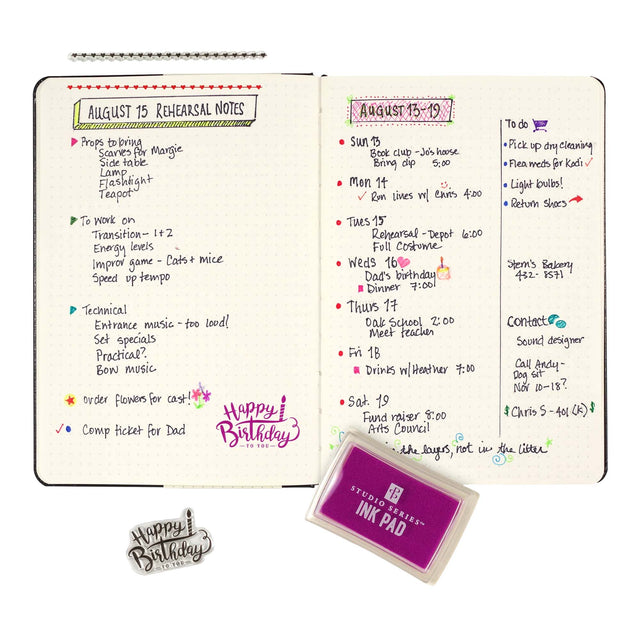 AUGUST 15 REHEARSAL NOTES
Props to bring
Scarves for Margie
Side table
Lamp
Flashlight
Teapot
To work on
Transition - 1+2
Energy levels
Improv game - Cats + mice
Speed up tempo
Technical
Entrance music - too loud!
Set specials
Practical?
Bow music
order flowers for cast!
Comp ticket for Dad
Happy
Birthday
TO YOU
AUGUST 13-19
Sun 13
Book club - Jo's house
Bring dip 5:00
Mon 14
Run lines w/ Chris 4:00
Tues 15
Rehearsal - Depot 6:00
Full Costume
Weds 16
Dad's birthday
Dinner 7:00
Thurs 17
Oak School 2:00
Meet teacher
Fri 18
Drinks w/ Heather 7:00
Sat. 19
Fund raiser 8:00
Arts Council
To do
Pick up dry cleaning
Flea meds for Kodi
Light bulbs!
Return shoes
Stern's Bakery
432-8571
Contact
Sound designer
Call Andy-
Dog sit
Nov 10-18?
$ Chris S - 401 (K) $
the layers, not in the litter
STUDIO SERIES™
INK PAD
Happy
Birthday
TO YOU